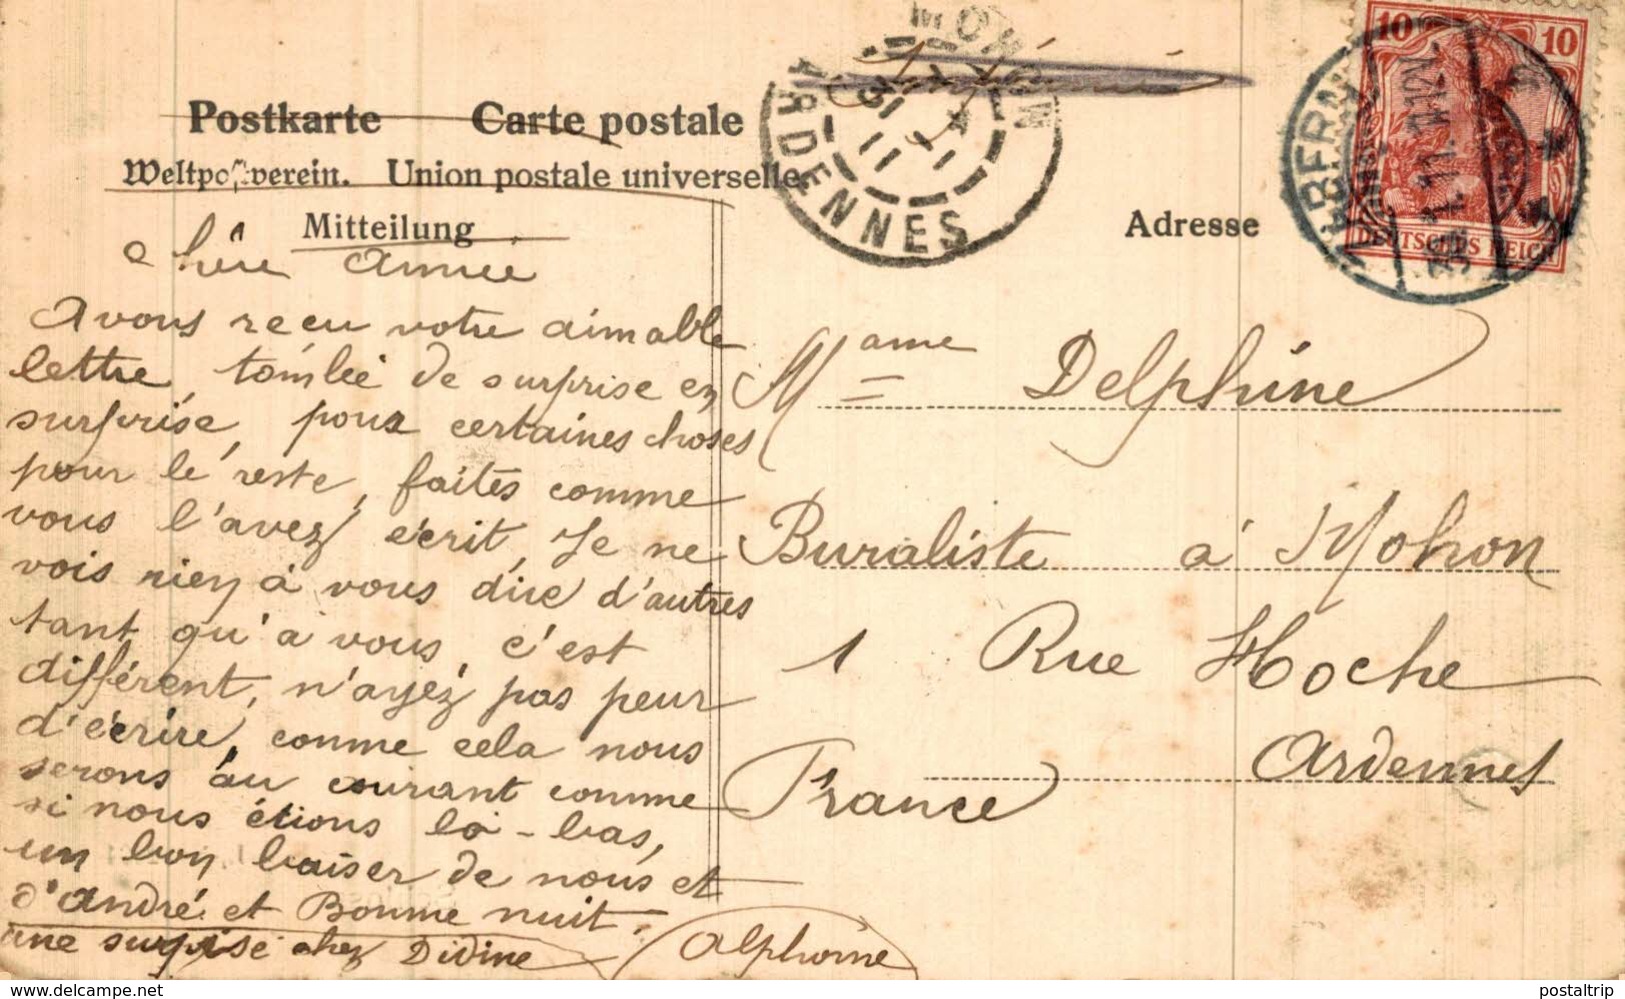 Postkarte Carte postale
Weltpostverein. Union postale universelle
Mitteilung
Adresse
MOHON
ARDENNES
31
11
10 10
DEUTSCHES REICH
chère Année
Avons recu votre aimable
lettre, tombée de surprise en
surprise, pour certaines choses
pour le reste, faites comme
vous l'avez écrit, Je ne
vois rien à vous dire d'autres
tant qu'à vous, c'est
différent, n'ayez pas peur
d'écrire, comme cela nous
serons au courant comme
si nous étions là-bas,
un bon baiser de nous et
d'André et Bonne nuit.
une surprise chez Didine
Alphonsine
Mame Delphine
Buraliste à Mohon
1 Rue Hoche
Ardennes
France
www.delcampe.net
postaltrip